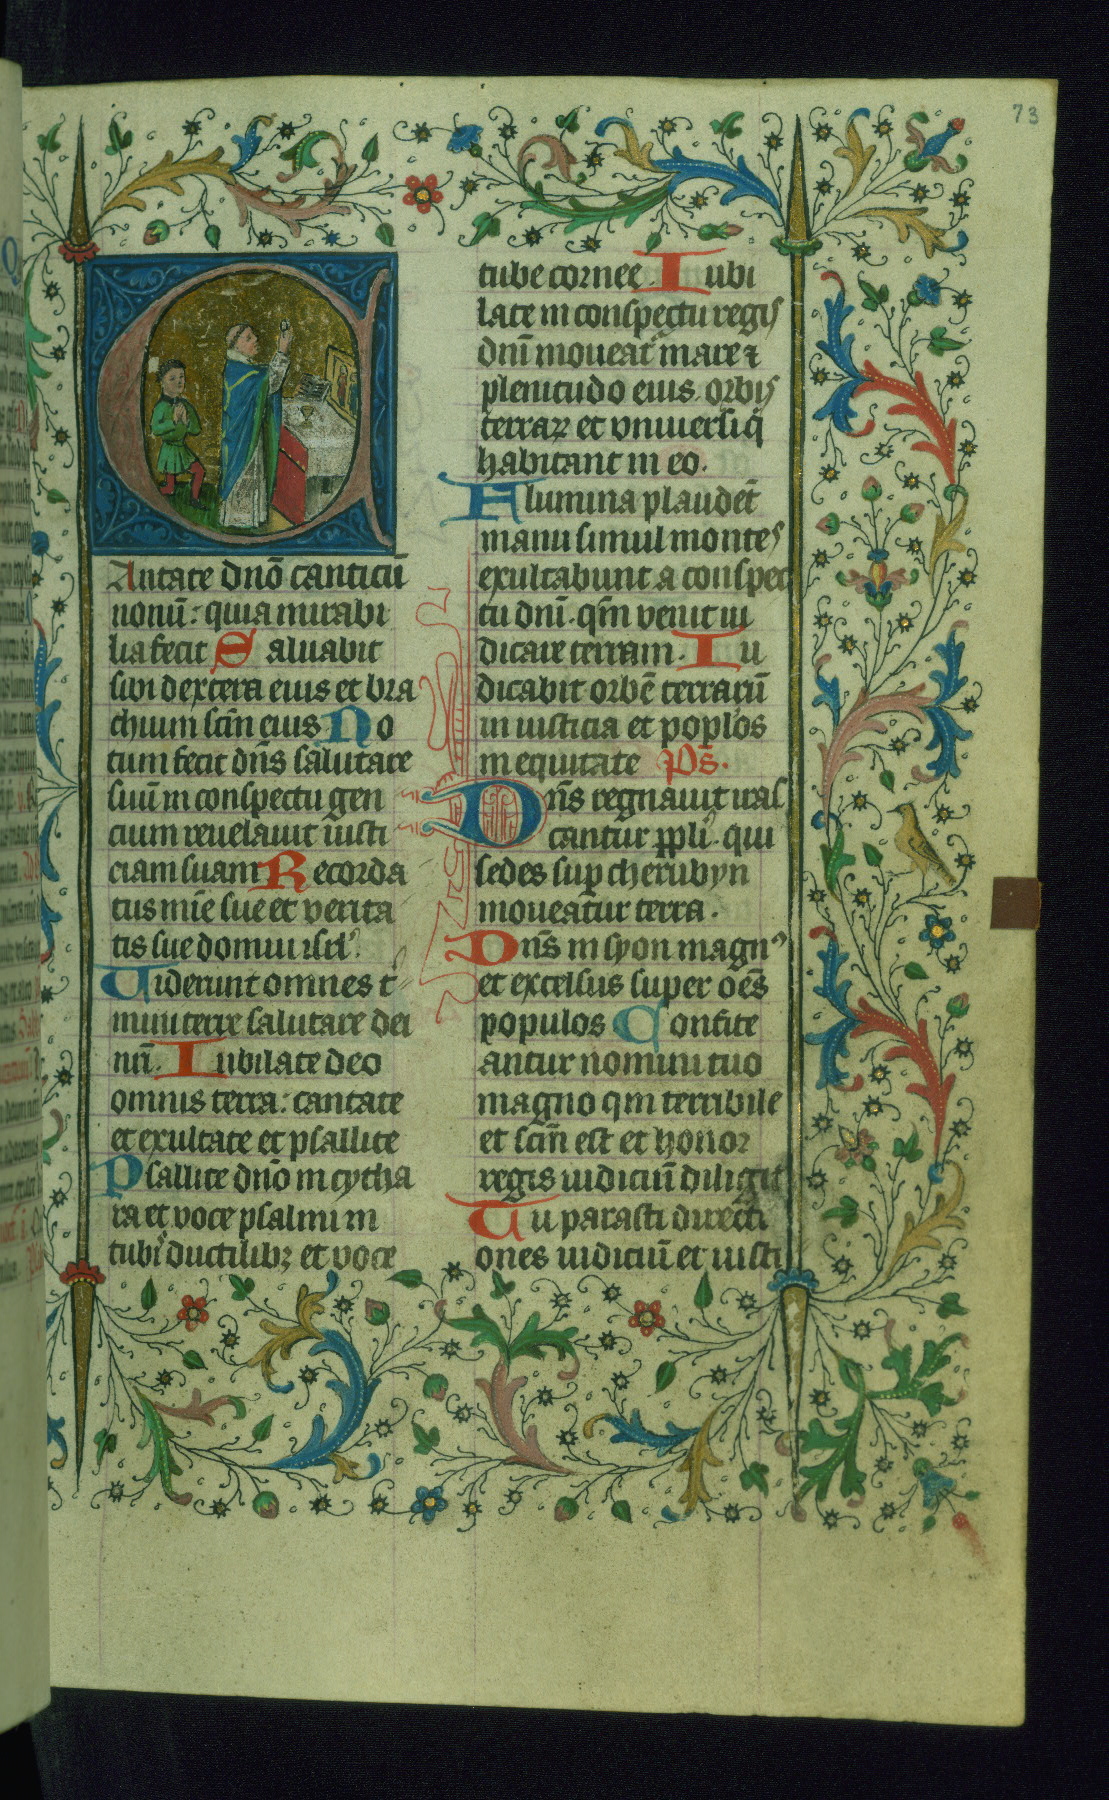 73
Cantate dnō canticū
nouū: quia mirabi
lia fecit Saluabit
sibi dextera eius et bra
chium scm̄ eius No
tum fecit dn̄s salutare
suū in conspectu gen
cium reuelauit iusti
ciam suam Recorda
tus mīe sue et verita
tis sue domui isrl'.
Viderunt omnes t'
mini terre salutare dei
nr̄i. Iubilate deo
omnis terra: cantate
et exultate et psallite
Psallite dnō in cytha
ra et voce psalmi in
tubis ductilibꝫ et voce
tube cornee. Iubi
late in conspectu regis
dnī moueat᷑ mare ⁊
plenitudo eius. orbis
terraꝝ et vniuersi q̇
habitant in eo.
Flumina plaudēt
manu simul montes
exultabunt a conspec
tu dnī. qm̄ venit iu
dicare terram. Iu
dicabit orbē terrarū
in iusticia et poplos
in equitate Ps̄.
Dn̄s regnauit iras
cantur ppl̄i. qui
sedes sup cherubyn
moueatur terra.
Dn̄s in syon magnꝰ
et excelsus super oēs
populos Confite
antur nomini tuo
magno qm terribile
et scm̄ est et honor
regis iudiciū diligit
Tu parasti directi
ones iudiciū et iusti